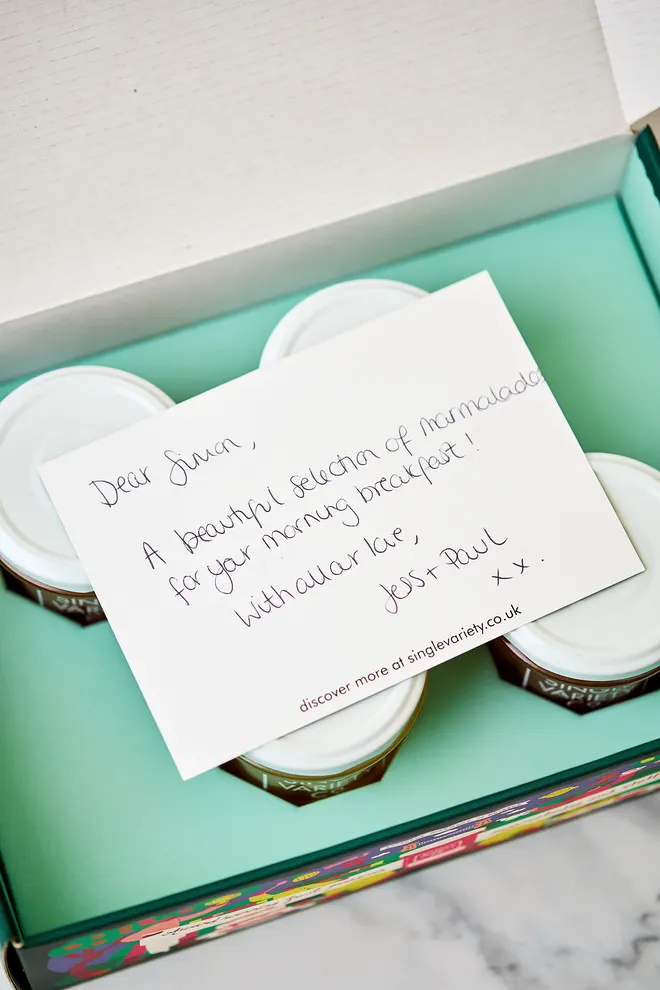 Dear Simon,
A beautiful selection of marmalade
for your morning breakfast!
With all our love,
Jess + Paul
xx.
discover more at singlevariety.co.uk
SINGLE
VARIETY
VARIETY
CO